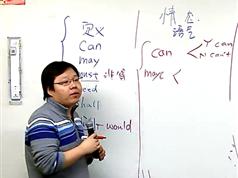 情态
语气
定义
Can
can Y can
N can't
may
may
must
need
shall
would